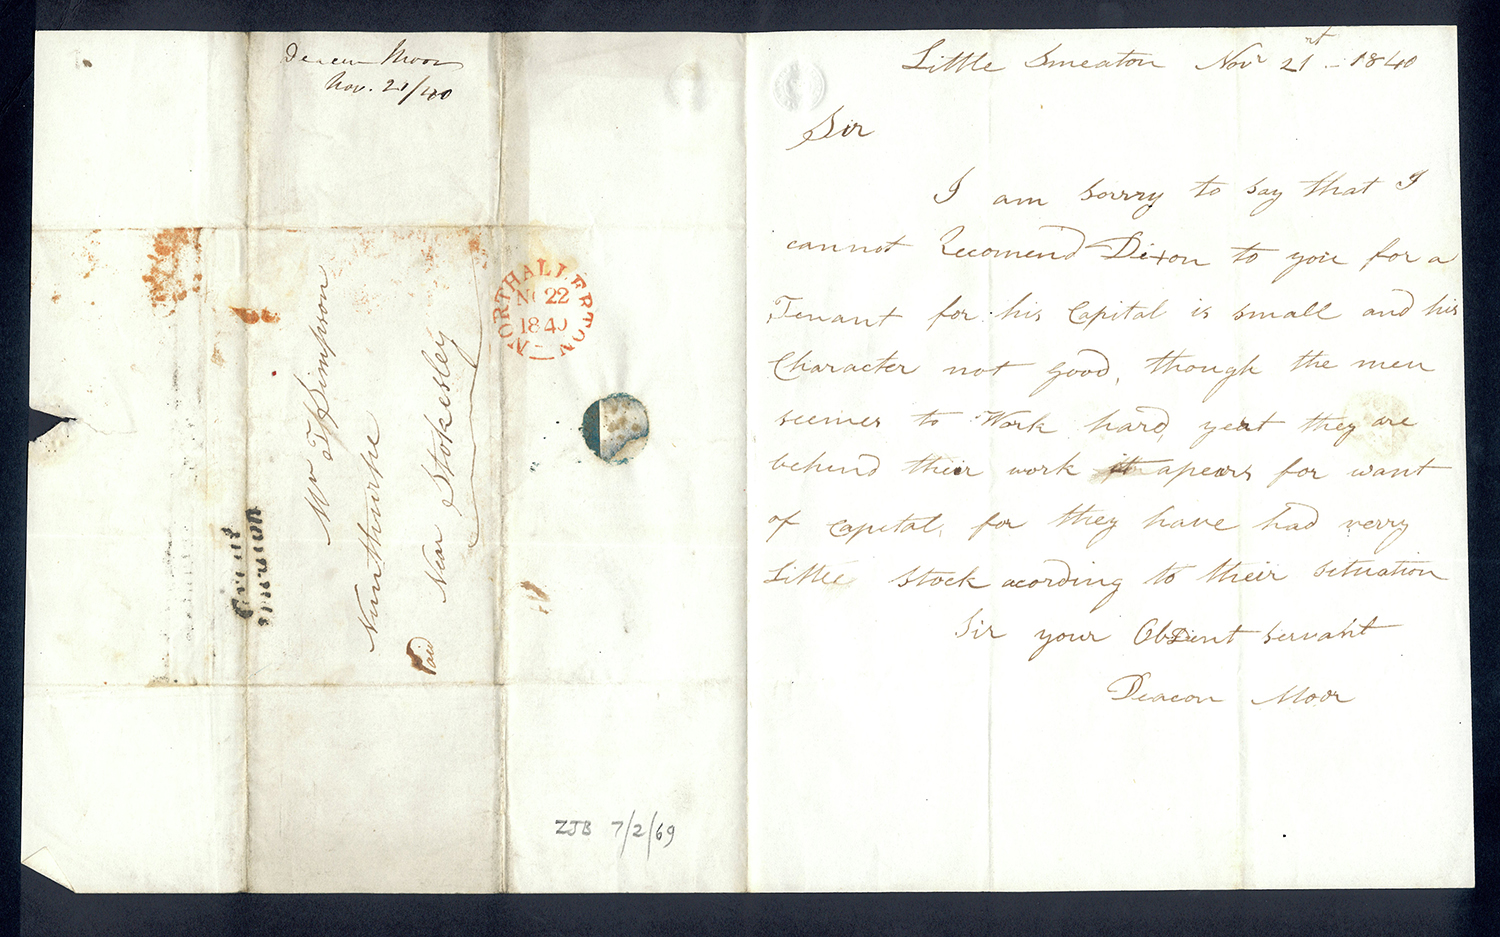 Deacon Moor
Nov. 21/40
Mr T Simpson
Nunthorpe
Near Stokesley
Paid
NORTHALLERTON
NO 22
1840
ZJB 7/2/69
Little Smeaton Novr 21st - 1840
Sir
I am sorry to say that I
cannot Recomend Dixon to you for a
Tenant for his Capital is small and his
Character not good, though the men
seemes to Work hard, yeat they are
behend their work it apears for want
of capital, for they have had verry
Little stock acording to their setuation
Sir your Obdient servant
Deacon Moor